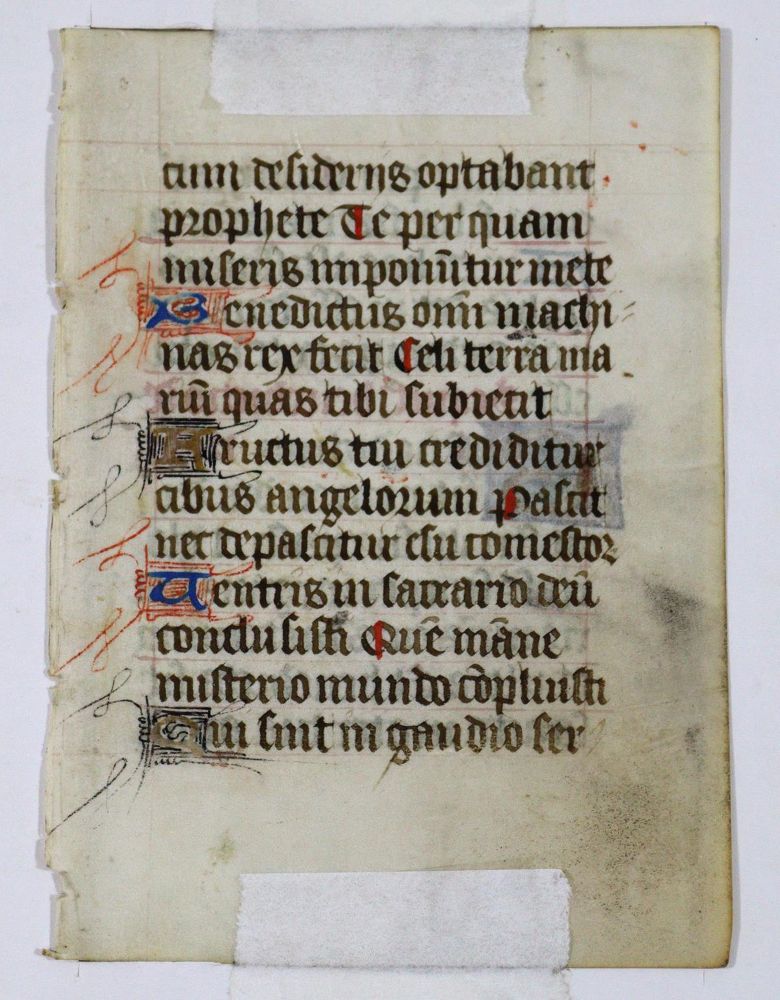 cum desiderijs optabant
prophete Te per quam
miseris imponūtur mete
Benedictus omī machi
nas rex fecit Celi terra ma
riū quas tibi subiecit
Fructus tui crediditur
cibus angelorum Pascit
nec depascitur esu comestor
Uentris in sacrario deū
conclusisti Quē māne
misterio mundo cōpluisti
Qui sint in gaudio ser